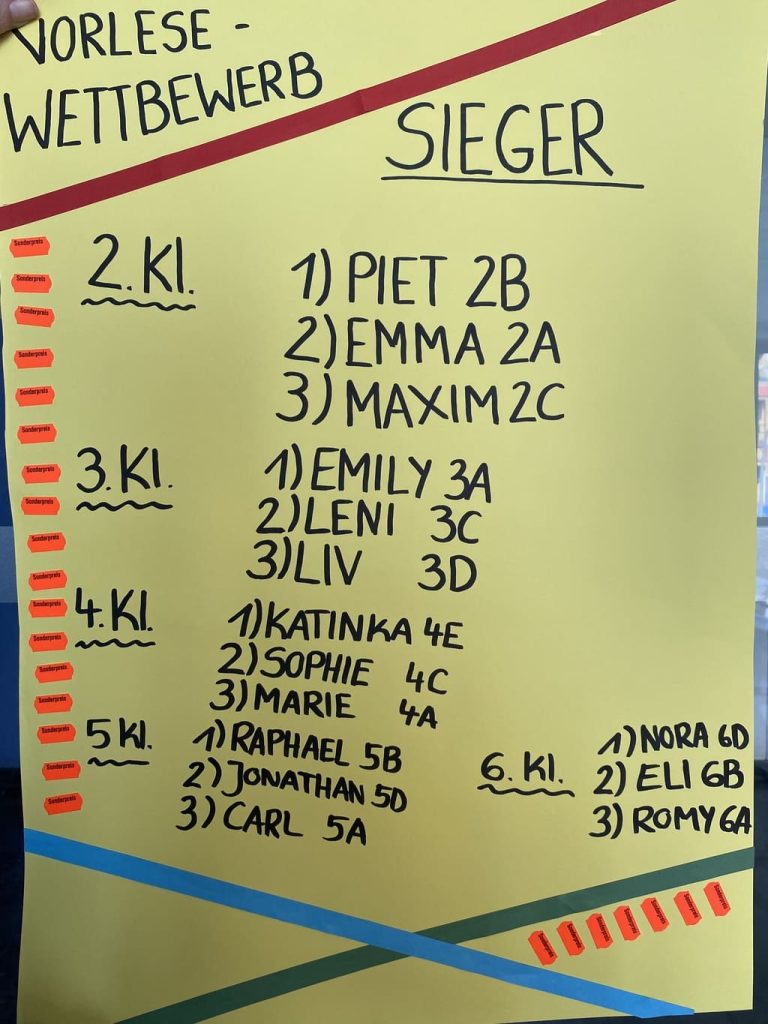 VORLESE -
WETTBEWERB
SIEGER
2. Kl.
1) PIET 2B
2) EMMA 2A
3) MAXIM 2C
3. Kl.
1) EMILY 3A
2) LENI 3C
3) LIV 3D
4. Kl.
1) KATINKA 4E
2) SOPHIE 4C
3) MARIE 4A
5 Kl.
1) RAPHAEL 5B
2) JONATHAN 5D
3) CARL 5A
6. Kl.
1) NORA 6D
2) ELI 6B
3) ROMY 6A
Sonderpreis
Sonderpreis
Sonderpreis
Sonderpreis
Sonderpreis
Sonderpreis
Sonderpreis
Sonderpreis
Sonderpreis
Sonderpreis
Sonderpreis
Sonderpreis
Sonderpreis
Sonderpreis
Sonderpreis
Sonderpreis
Sonderpreis
Sonderpreis
Sonderpreis
Sonderpreis
Sonderpreis
Sonderpreis
Sonderpreis
Sonderpreis